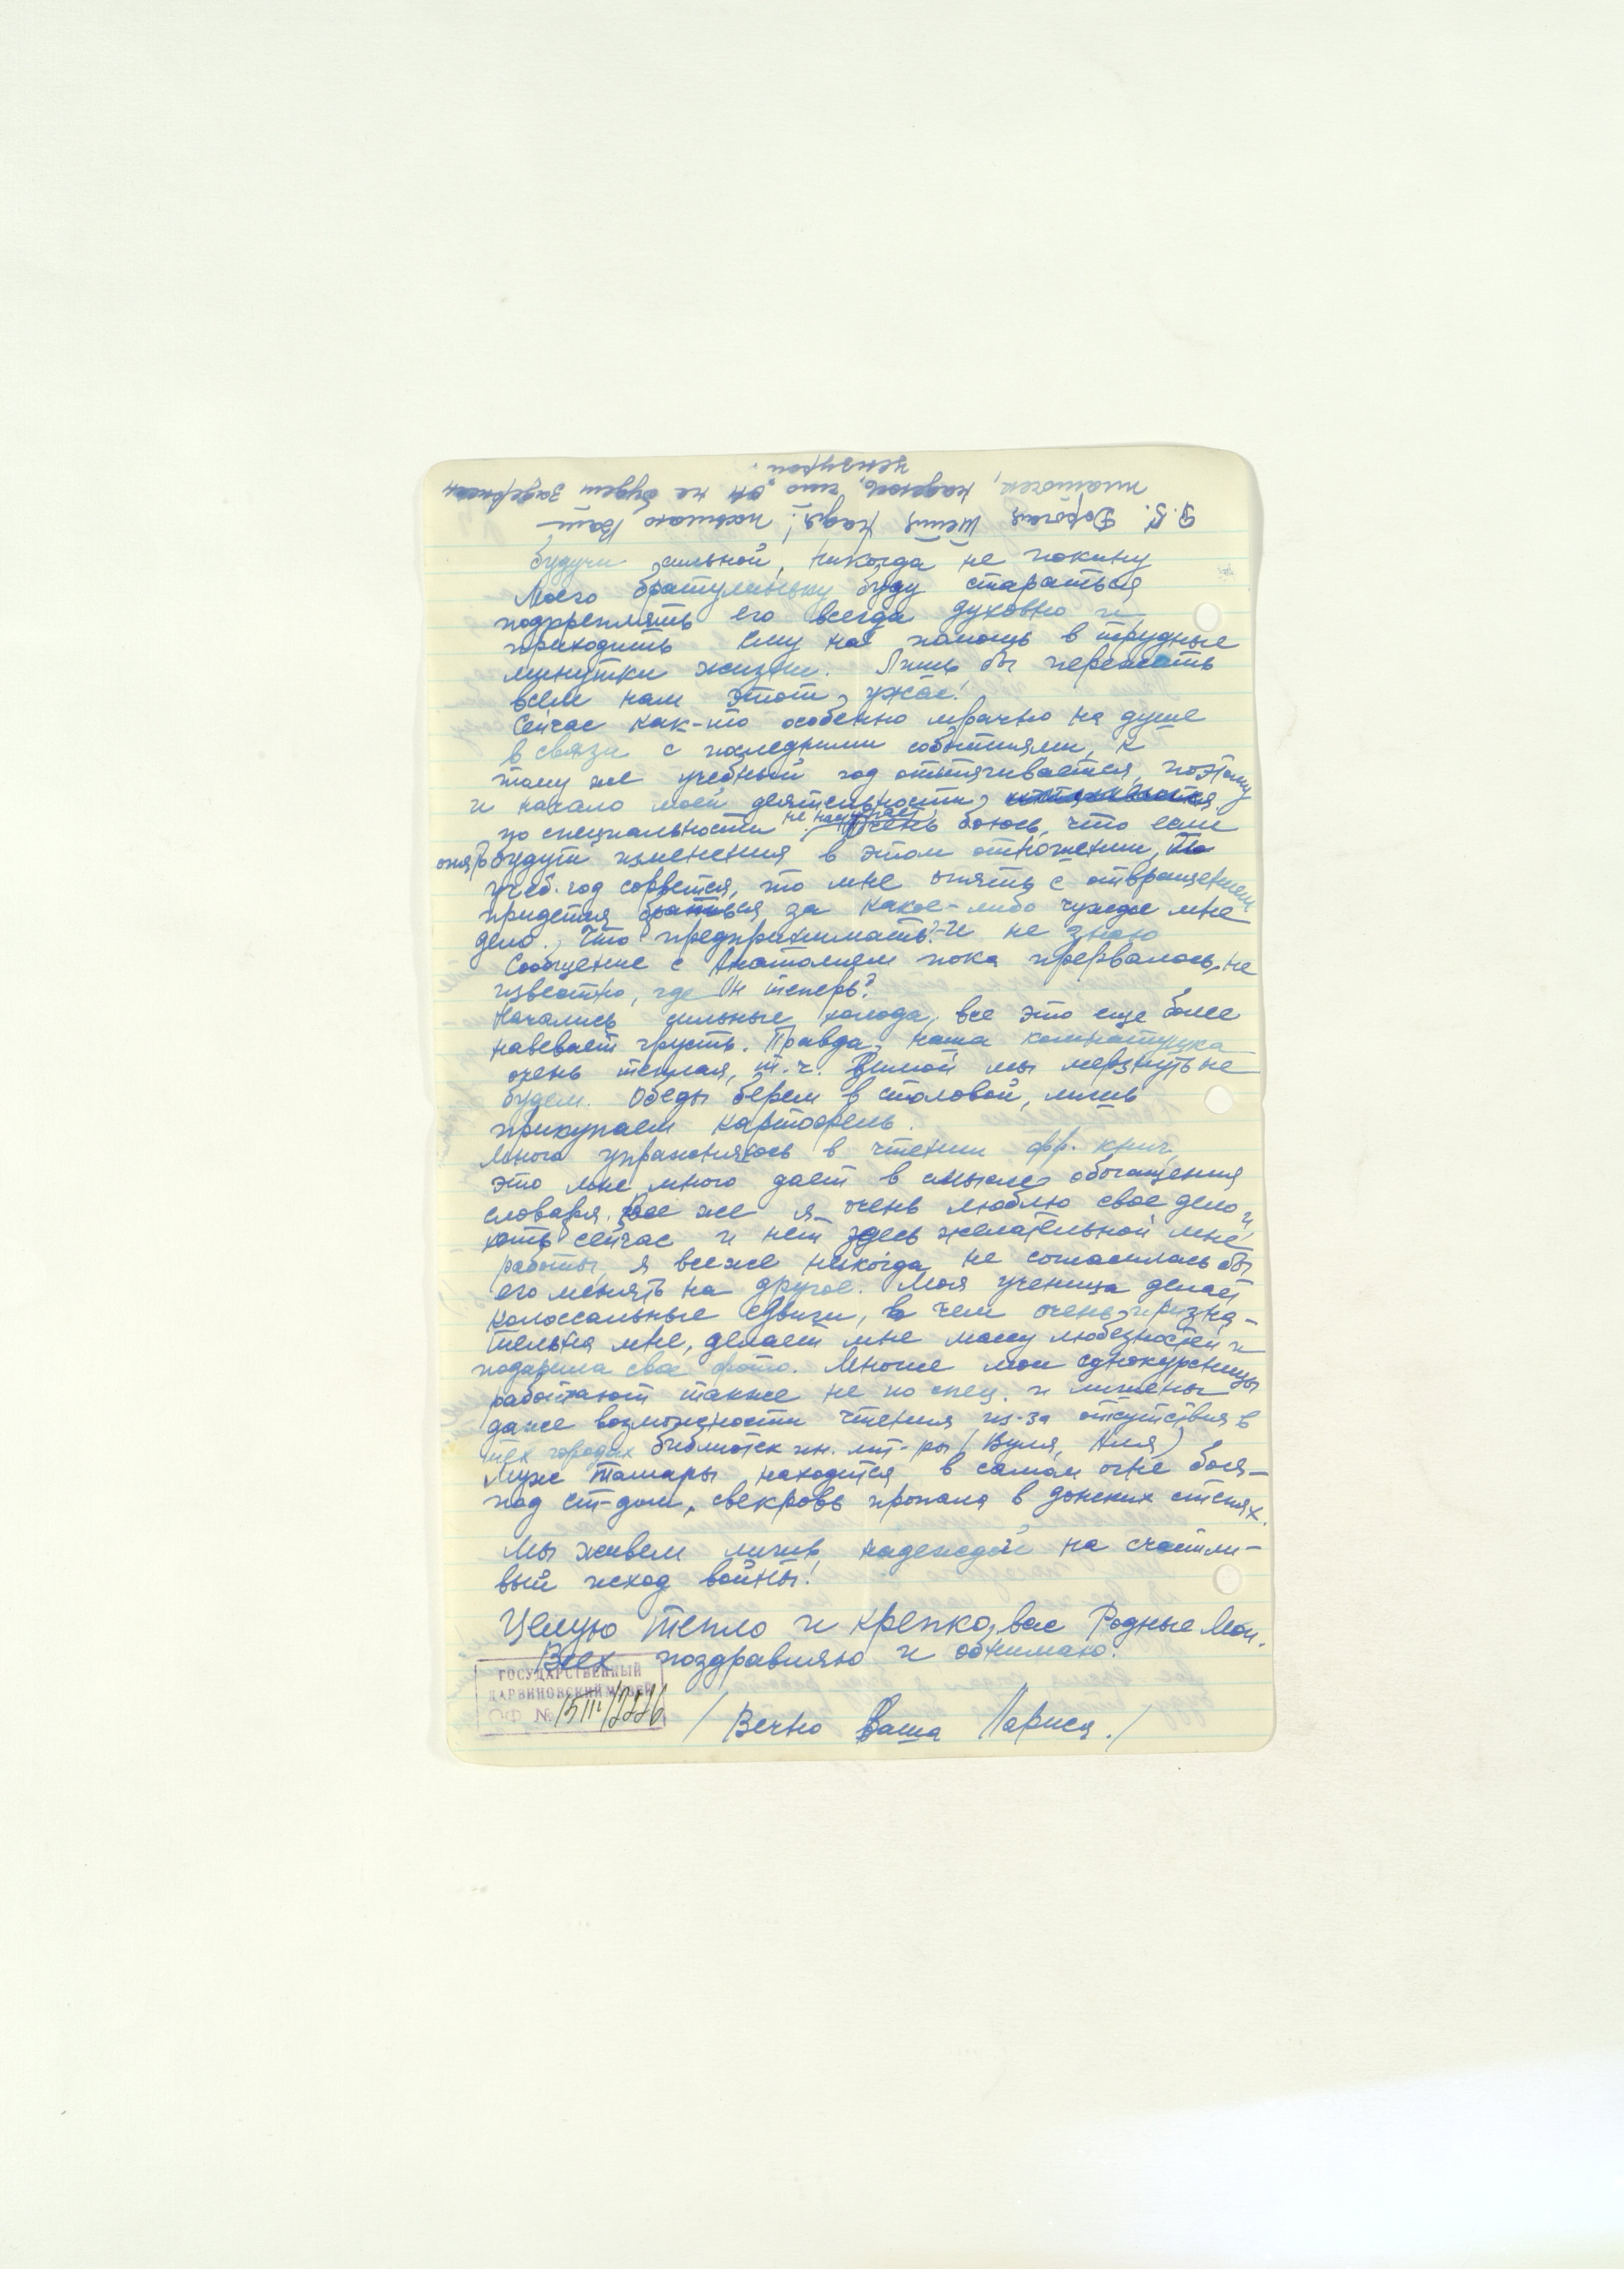 P.S. Дорогая тетя Надя! посылаю Вам
платочек, надеюсь, что он не будет задержан
цензурой.
будучи сильной, никогда не покину
моего братуленьку буду стараться
подкреплять его всегда духовно и
приходить ему на помощь в трудные
минутки жизни. Лишь бы пережить
всем нам этот ужас!
Сейчас как-то особенно мрачно на душе
в связи с последними событиями, к
тому же учебный год оттягивается, поэтому
и начало моей деятельности
по специальности не наступает. Очень боюсь, что если
опять будут изменения в этом отношении,
учеб. год сорвется, то мне опять с отвращением
придется браться за какое-либо чуждое мне
дело. Что предпринимать? И не знаю
Сообщение с Анатолием пока прервалось, не
известно, где он теперь?
Начались сильные холода, все это еще более
навевает грусть. Правда, наша комнатушка
очень теплая, т.ч. зимой мы мерзнуть не
будем. Обеды берем в столовой, лишь
прикупаем картофель.
Много упражняюсь в чтении фр. книг,
это мне много дает в смысле обогащения
словаря. Все же я очень люблю свое дело и,
хоть сейчас и нет здесь желательной мне
работы, я все же никогда не согласилась бы
его менять на другое. Моя ученица делает
колоссальные сдвиги, в чем очень призна-
тельна мне, делает мне массу любезностей и
подарила свое фото. Многие мои однокурсницы
работают также не по спец. и лишены
даже возможности чтения из-за отсутствия в
тех городах библиотек ин. лит-ры (Вуля, Аля)
Муж Тамары находится в самом огне боя-
под Ст-дом, свекровь пропала в донских степях.
Мы живем лишь надеждой на счастли-
вый исход войны!
Целую тепло и крепко вас Родные Мои.
Всех поздравляю и обнимаю.
/Вечно Ваша Лариса./
ГОСУДАРСТВЕННЫЙ
ДАРВИНОВСКИЙ МУЗЕЙ
ОФ №